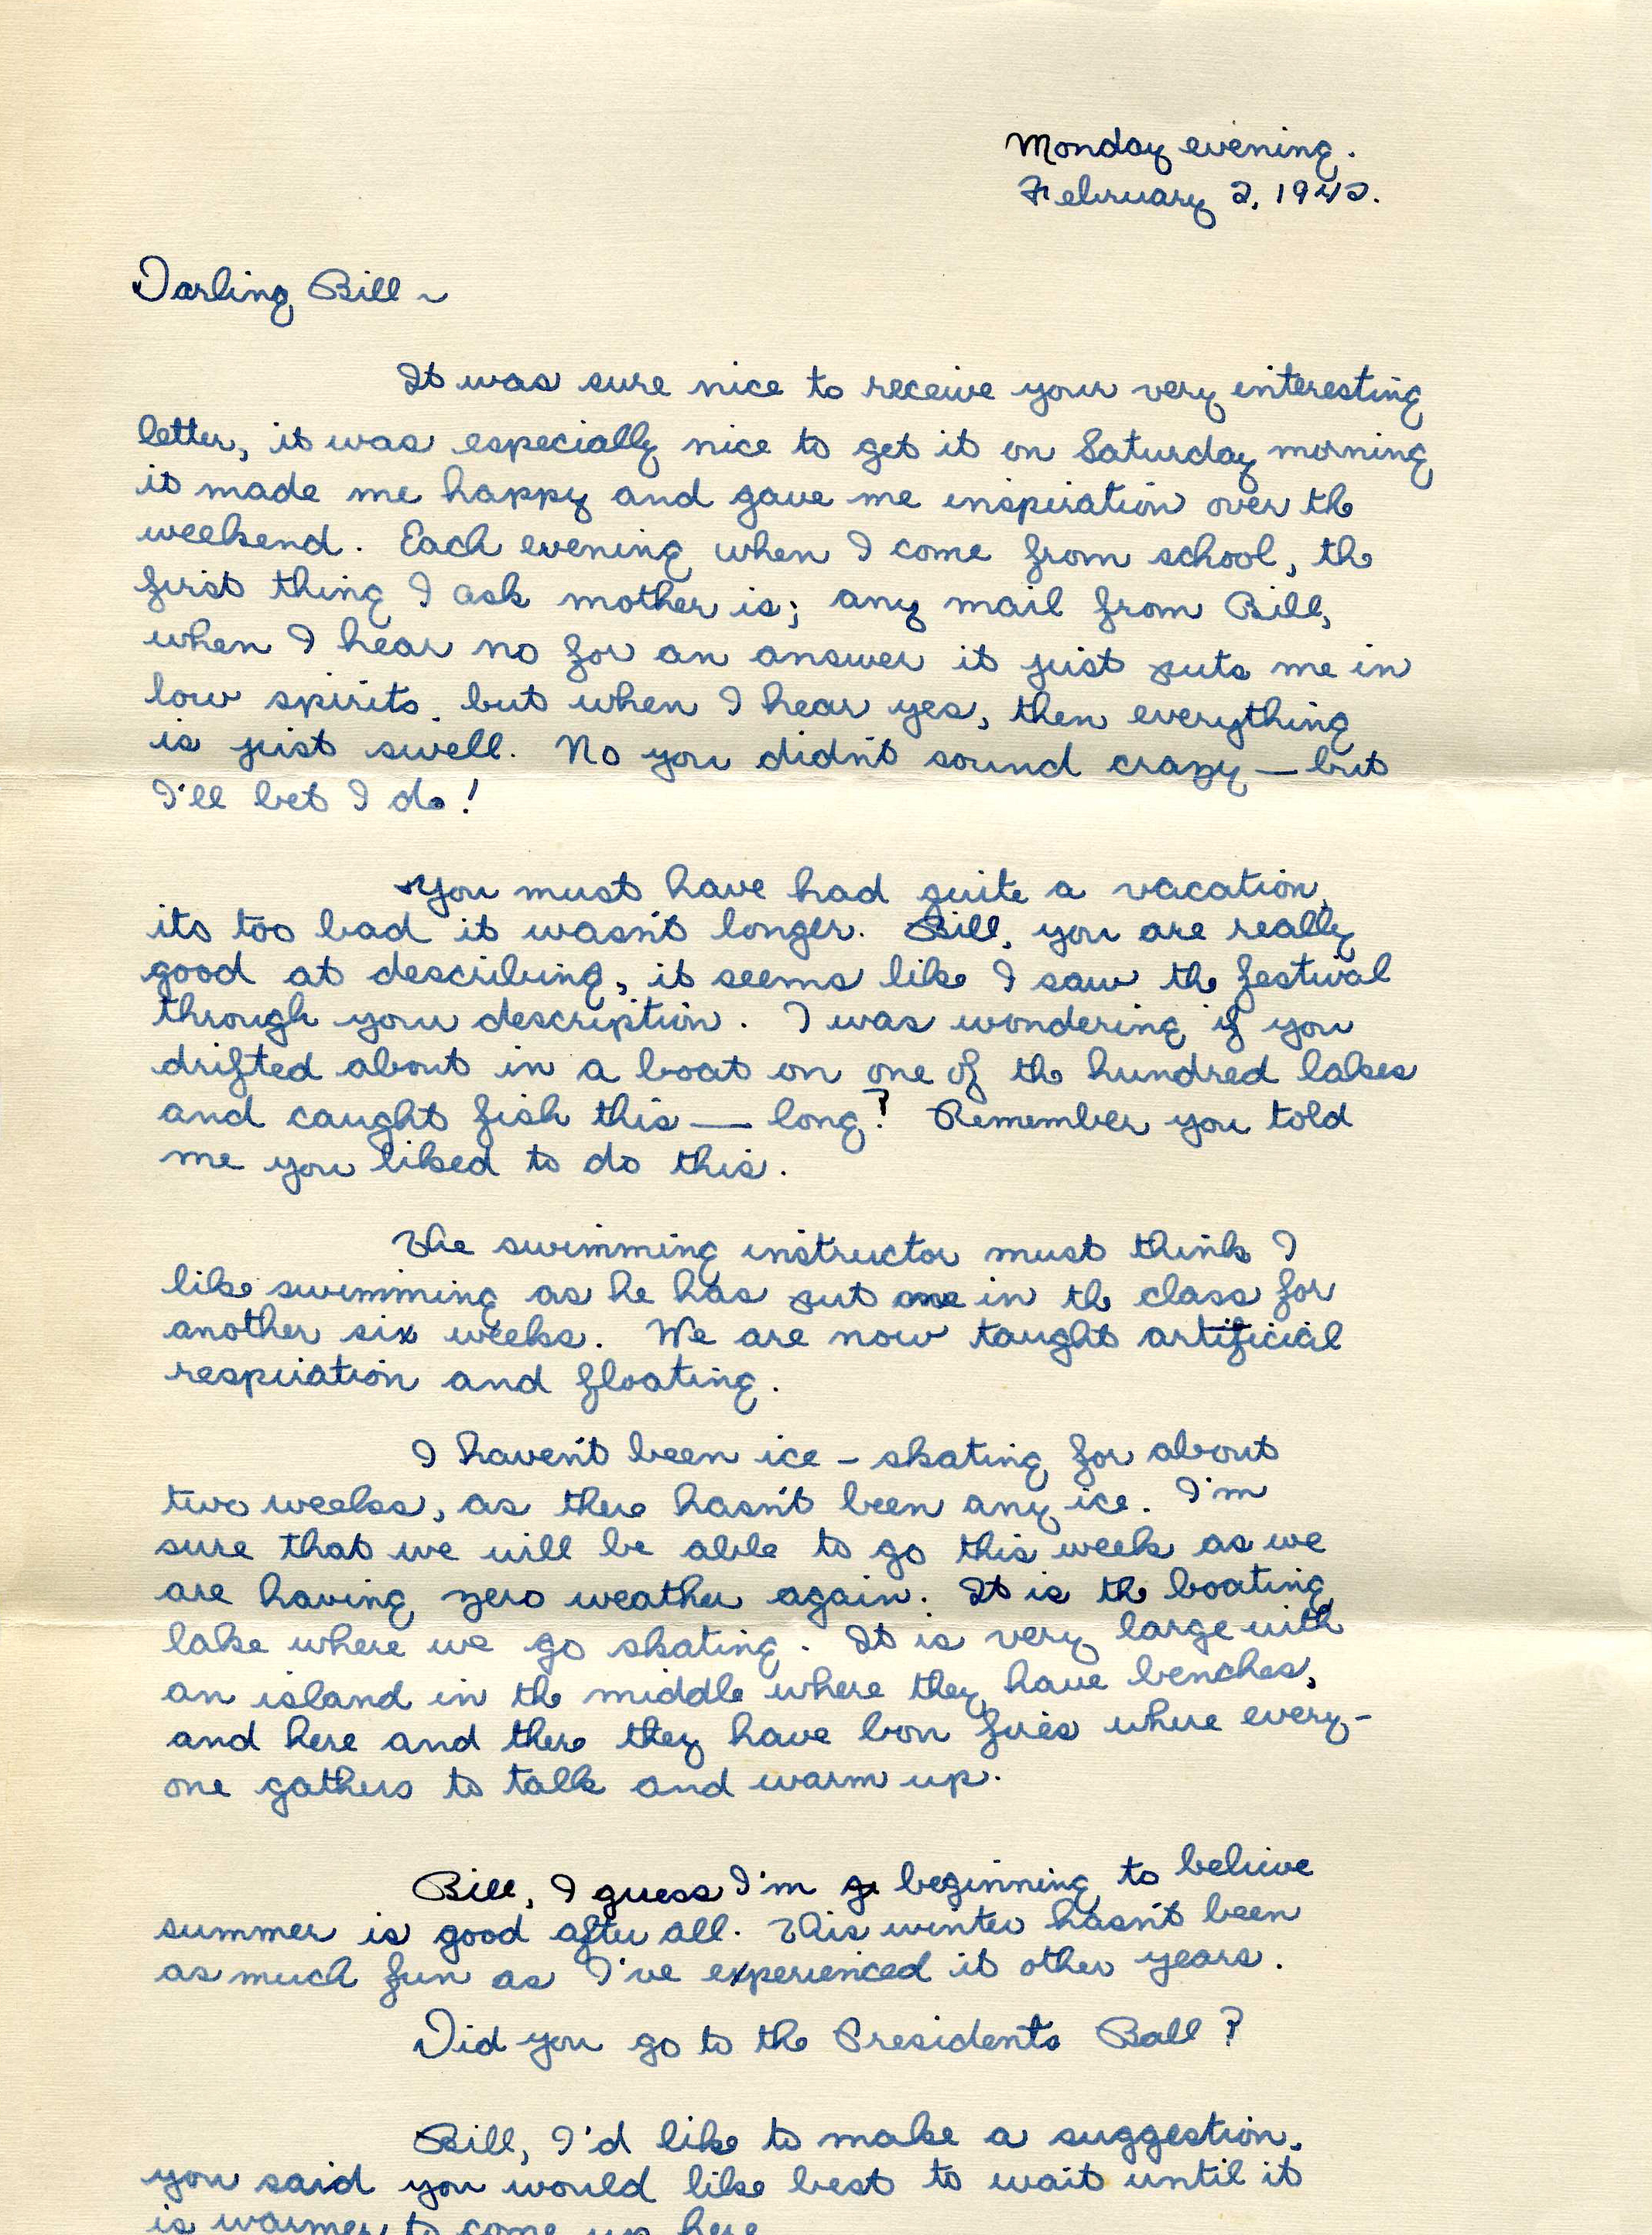 Monday evening.
February 2, 1942.
Darling Bill ~
It was sure nice to receive your very interesting
letter, it was especially nice to get it on Saturday morning
it made me happy and gave me inspiration over the
weekend. Each evening when I come from school, the
first thing I ask mother is; any mail from Bill,
when I hear no for an answer it just puts me in
low spirits. but when I hear yes, then everything
is just swell. No you didn't sound crazy — but
I'll bet I do!
You must have had quite a vacation,
its too bad it wasn't longer. Bill, you are really
good at describing, it seems like I saw the festival
through your description. I was wondering if you
drifted about in a boat on one of the hundred lakes
and caught fish this — long? Remember you told
me you liked to do this.
The swimming instructor must think I
like swimming as he has put me in the class for
another six weeks. We are now taught artificial
respiration and floating.
I haven't been ice - skating for about
two weeks, as there hasn't been any ice. I'm
sure that we will be able to go this week as we
are having zero weather again. It is the boating
lake where we go skating. It is very large with
an island in the middle where they have benches,
and here and there they have bon fires where every-
one gathers to talk and warm up.
Bill, I guess I'm beginning to believe
summer is good after all. This winter hasn't been
as much fun as I've experienced it other years.
Did you go to the Presidents Ball?
Bill, I'd like to make a suggestion.
you said you would like best to wait until it
is warmer to come up here